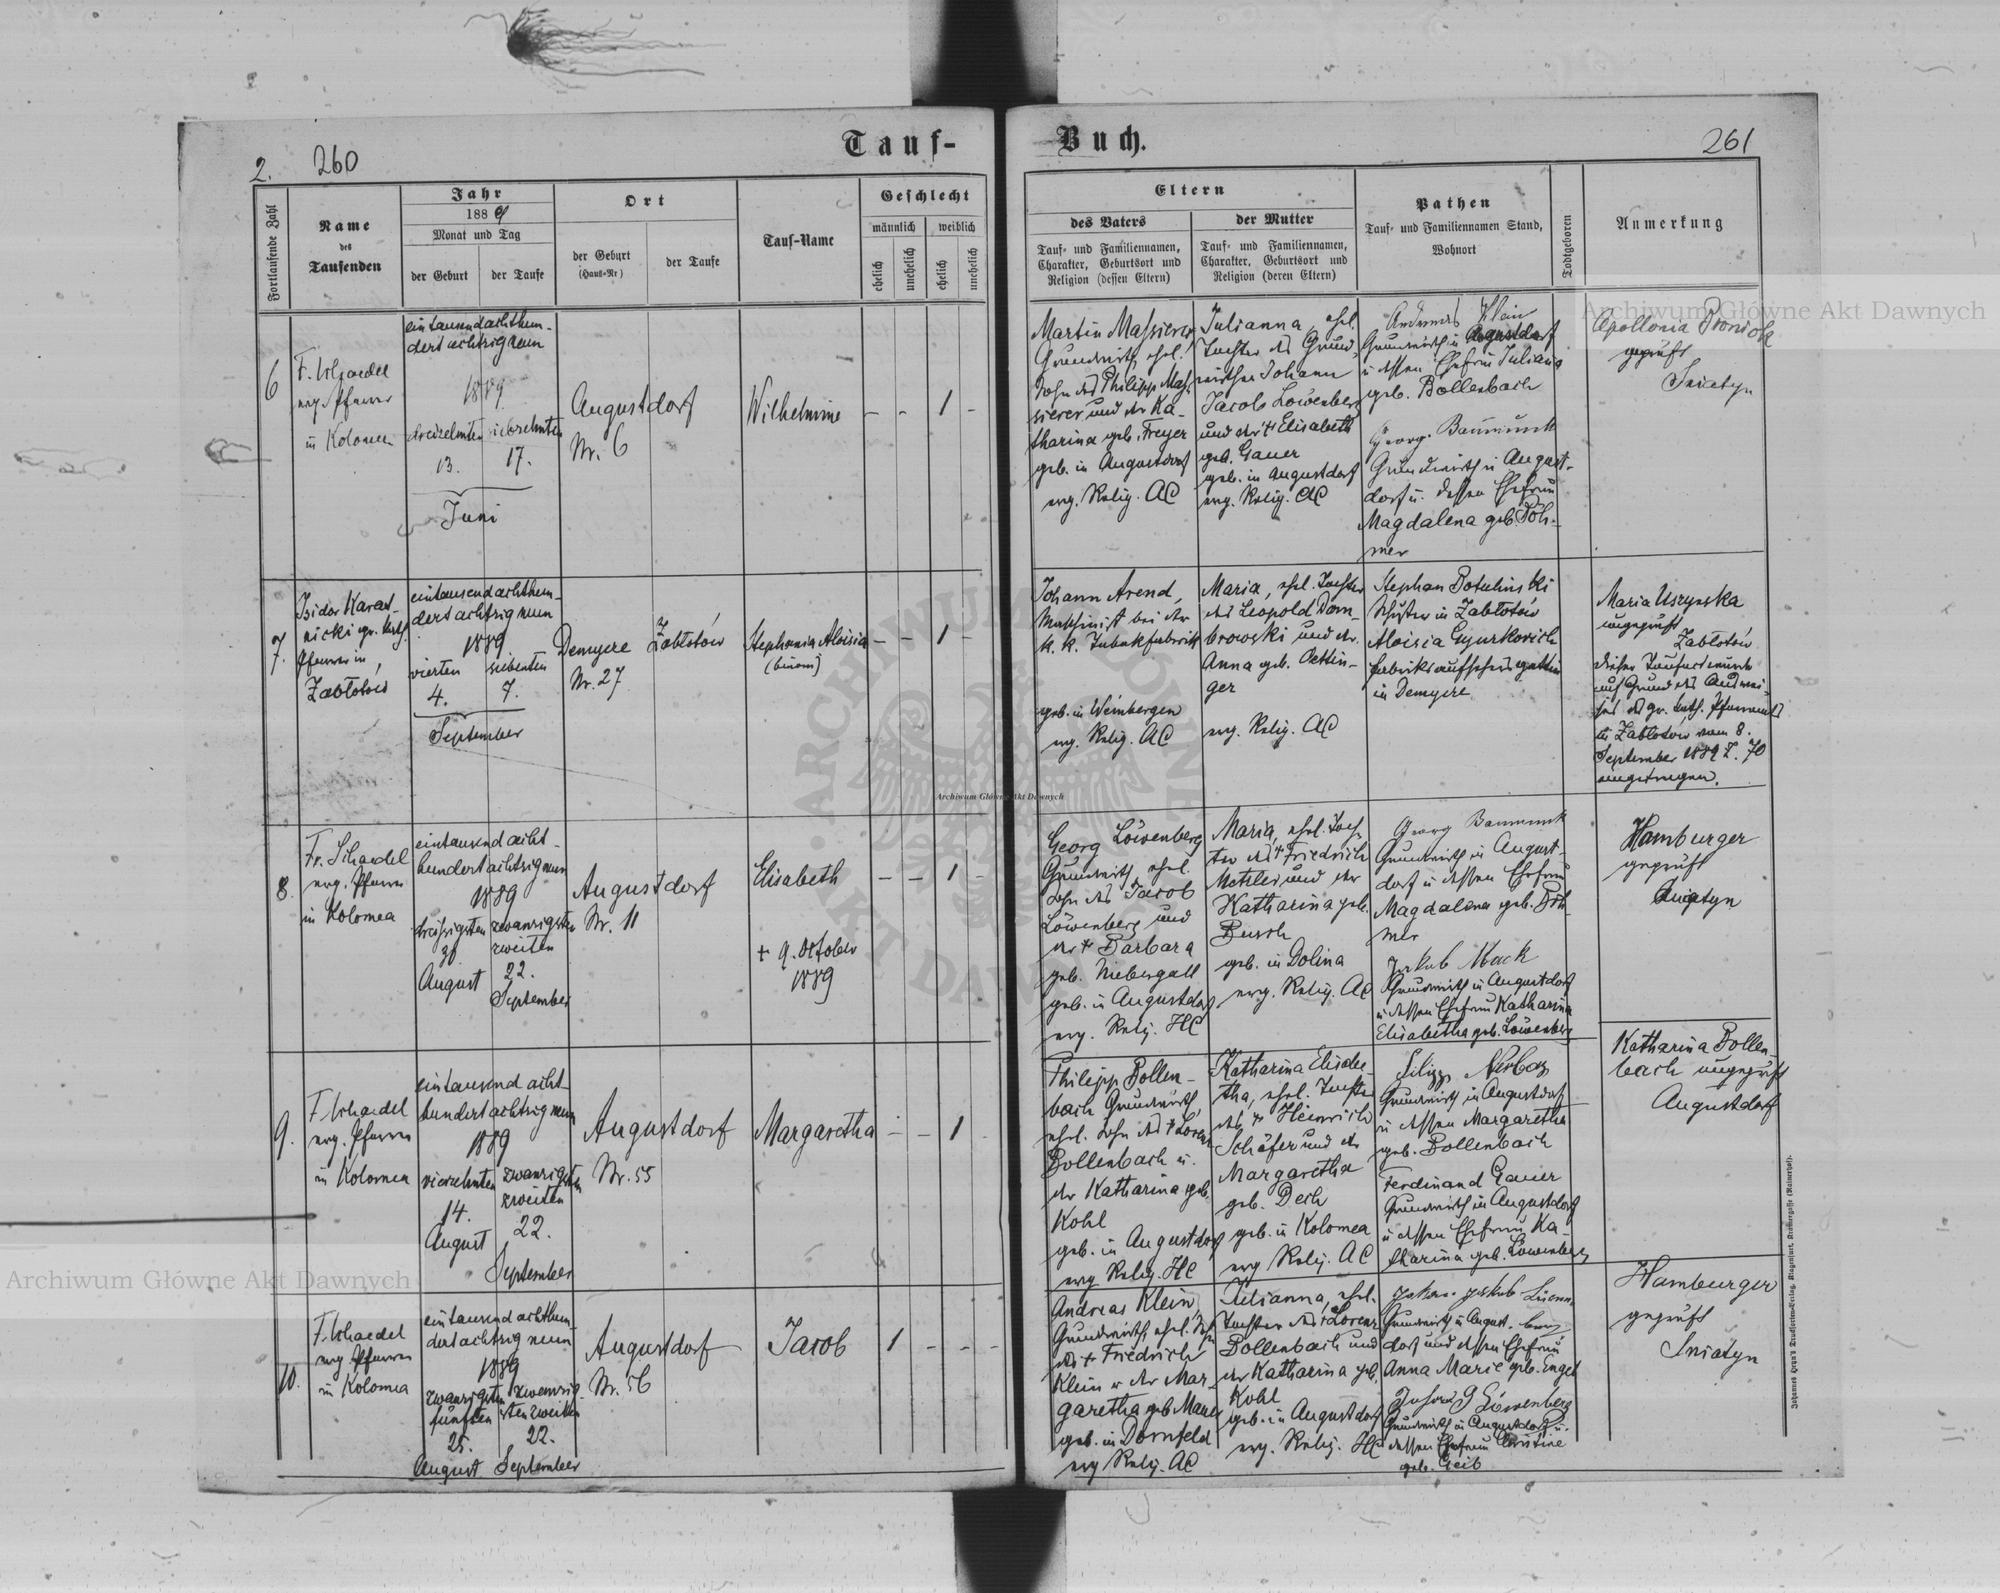 Tauf-
2. 260
Fortlaufende Zahl
Name
des
Taufenden
Jahr
1889
Monat und Tag
der Geburt
der Taufe
Ort
der Geburt
(Haus-Nr)
der Taufe
Tauf-Name
Geschlecht
männlich
weiblich
ehelich
unehelich
ehelich
unehelich
6
F. Schaedel
evg. Pfarrer
in Kolomea
eintausendachthun-
dertachtzigneun
1889
dreizehnten
13.
siebzehnten
17.
Juni
Augustdorf
Nr. 6
Wilhelmine
- - 1 -
7.
Isidor
nicki gr. kath.
Pfarrer in
Zabłotów
eintausendachthun-
dertachtzigneun
1889
vierten
4.
siebenten
7.
September
Demycze
Nr. 27
Zabłotów
Stephania Aloisia
- - 1 -
8.
Fr. Schaedel
evg. Pfarrer
in Kolomea
eintausendacht-
hundertachtzigneun
1889
dreißigsten
30
August
zwanzigsten
zweiten
22.
September
Augustdorf
Nr. 11
Elisabeth
+ 9. October
1889
- - 1 -
9.
F. Schaedel
evg. Pfarrer
in Kolomea
eintausend acht-
hundertachtzigneun
1889
vierzehnten
14.
August
zwanzigsten
zweiten
22.
September
Augustdorf
Nr. 55
Margaretha
- - 1 -
10.
F. Schaedel
evg. Pfarrer
in Kolomea
eintausendachthun-
dertachtzigneun
1889
zwanzigsten
fünften
25.
August
zwanzig-
sten zweiten
22.
September
Augustdorf
Nr. 56
Jacob
1 - - -
Buch.
261
Eltern
des Vaters
Tauf- und Familiennamen,
Charakter, Geburtsort und
Religion (dessen Eltern)
der Mutter
Tauf- und Familiennamen,
Charakter, Geburtsort und
Religion (deren Eltern)
Pathen
Tauf- und Familiennamen Stand,
Wohnort
Todtgeboren
Anmerkung
Martin Massierer
Grundwirth, ehel.
Sohn des Philipp Mas-
sierer und der Ka-
tharina geb. Freyer
geb. in Augustdorf
evg. Relig. AC
Julianna ehel.
Tochter des Grund-
wirthes Johann
Jacob Löwenberg
und der + Elisabeth
geb. Gauer
geb. in Augustdorf
evg. Relig. AC
Andreas Klein
Grundwirth in Augustdorf
u dessen Ehefrau Juliana
geb. Bollenbach
Georg Baumunk
Grundwirth in August-
dorf u. dessen Ehefrau
Magdalena geb. Böh-
mer
Apollonia
geprüft
Sniatyn
Johann Arend,
Maschinist bei der
k. k. Tabakfabrik
geb. in Weinbergen
evg. Relig. AC
Maria, ehel. Tochter
des Leopold Dom-
browski und der
Anna geb. Oettin-
ger
evg. Relig. AC
Stephan
Schuster in Zabłotów
Aloisia Gyurkovich
Fabriksaufsehersgattin
in Demycze
Maria Uszynska
ungeprüft
Zabłotów
dieser Taufact wurde
auf Grund des Auswei-
ses des gr. kath. Pfarramts
in Zabłotów vom 8.
September 1889 Z. 70
eingetragen.
Georg Löwenberg
Grundwirth, ehel.
Sohn des Jacob
Löwenberg und
der + Barbara
geb. Niebergall
geb. in Augustdorf
evg. Relig. HC
Maria, ehel. Toch-
ter des + Friedrich
Metzler und der
Katharina geb.
Busch
geb. in Dolina
evg. Relig. AC
Georg Baumunk
Grundwirth in August-
dorf u dessen Ehefrau
Magdalena geb. Böh-
mer
Jakob Mack
Grundwirth in Augustdorf
u dessen Ehefrau Katharina
Elisabetha geb. Löwenberg
Hamburger
geprüft
Sniatyn
Philipp Bollen-
bach Grundwirth
ehel. Sohn des + Lorenz
Bollenbach u.
der Katharina geb.
Kohl
geb. in Augustdorf
evg. Relig. HC
Katharina Elisabe-
tha, ehel. Tochter
des + Heinrich
Schäfer und der
Margaretha
geb. Desch
geb. in Kolomea
evg Relig. AC
Grundwirth in Augustdorf
u dessen Margaretha
geb. Bollenbach
Ferdinand Gauer
Grundwirth in Augustdorf
u dessen Ehefrau Ka-
tharina geb. Löwenberg
Katharina Bollen-
bach ungeprüft
Augustdorf
Andreas Klein,
Grundwirth, ehel. Sohn
des + Friedrich
Klein u der Mar-
garetha geb. Mauer
geb. in Dornfeld
evg Relig. AC
Julianna, ehel.
Tochter des + Lorenz
Bollenbach und
der Katharina geb.
Kohl
geb. in Augustdorf
evg. Relig. HC
Grundwirth in August-
dorf und dessen Ehefrau
Anna Marie geb. Engel
Löwenberg
Grundwirth in Augustdorf u.
dessen Ehefrau Christine
geb. Geib
Hamburger
geprüft
Sniatyn
Archiwum Główne Akt Dawnych
Archiwum Główne Akt Dawnych
Archiwum Główne Akt Dawnych
ARCHIWUM GŁÓWNE AKT DAWNYCH